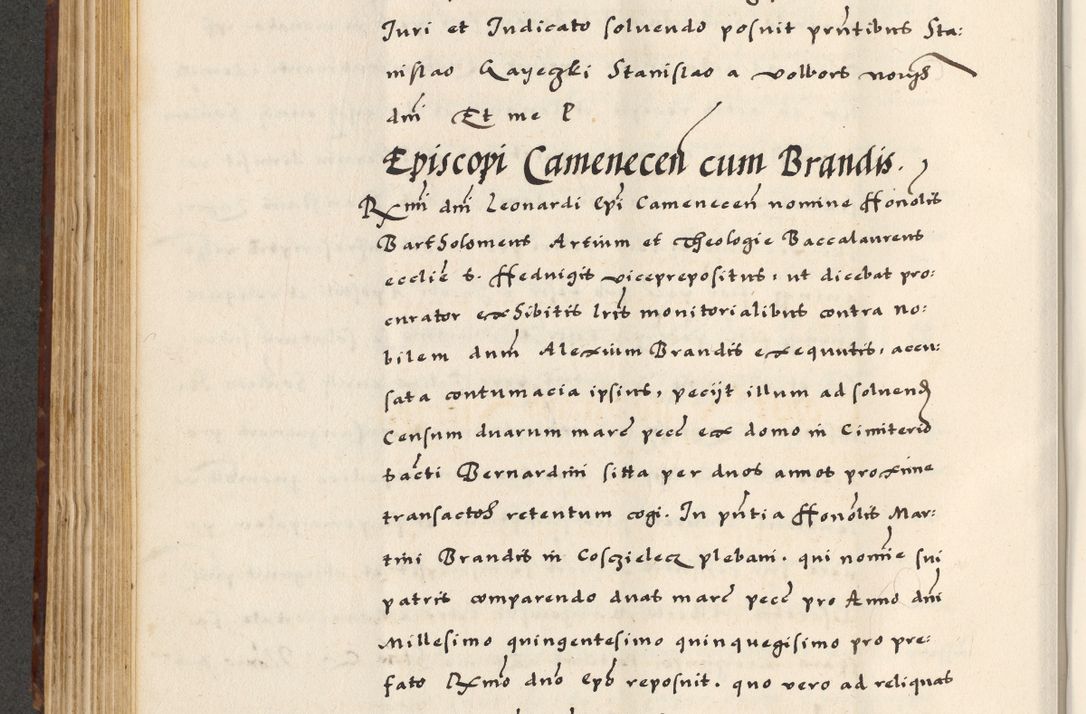 Juri et Indicato solvendo posuit pn̄tibus Sta:
nislao Gayeczki Stanislao a volbors
dn̄i Et me P
Episcopi Camenecen̄ cum Brandis.
Rxm̄i dn̄i Leonardi Ep̄i Camenecen̄ nomine Honōlis
Bartholomeus Artium et Theologie Baccalaureus
ecclīe s. Heduigis viceprepositus, ut dicebat pro:
curator exhibitis lr̄is monitorialibus contra no:
bilem dnūm Alexium Brandis exequutis, accu:
sata contumacia ipsius, pecijt illum ad solvend
Censum duarum marc̄ pecc̄ ex domo in Cimiterio
sācti Bernardini sitta per duos annos proxime
transactos retentum cogi. In pn̄tia Honōlis Mar:
tini Brandis in Cosczielecz plebani. qui nomīe sui
patris comparendo duas marc̄ pecc̄ pro Anno dn̄i
Millesimo quingentesimo quinquegisimo pro pre:
fato Rxm̄o dn̄o Ep̄o reposuit. quo vero ad reliquas